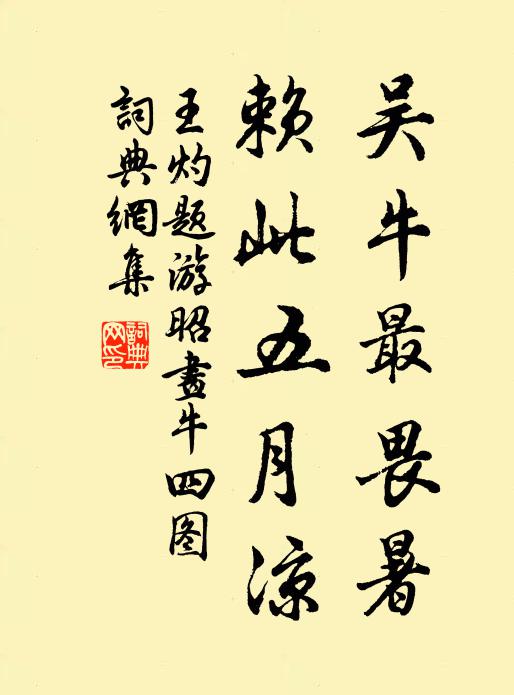 吴牛最畏暑
赖此五月凉
王灼题游昭畫牛四图
詞典網集
詞典网印